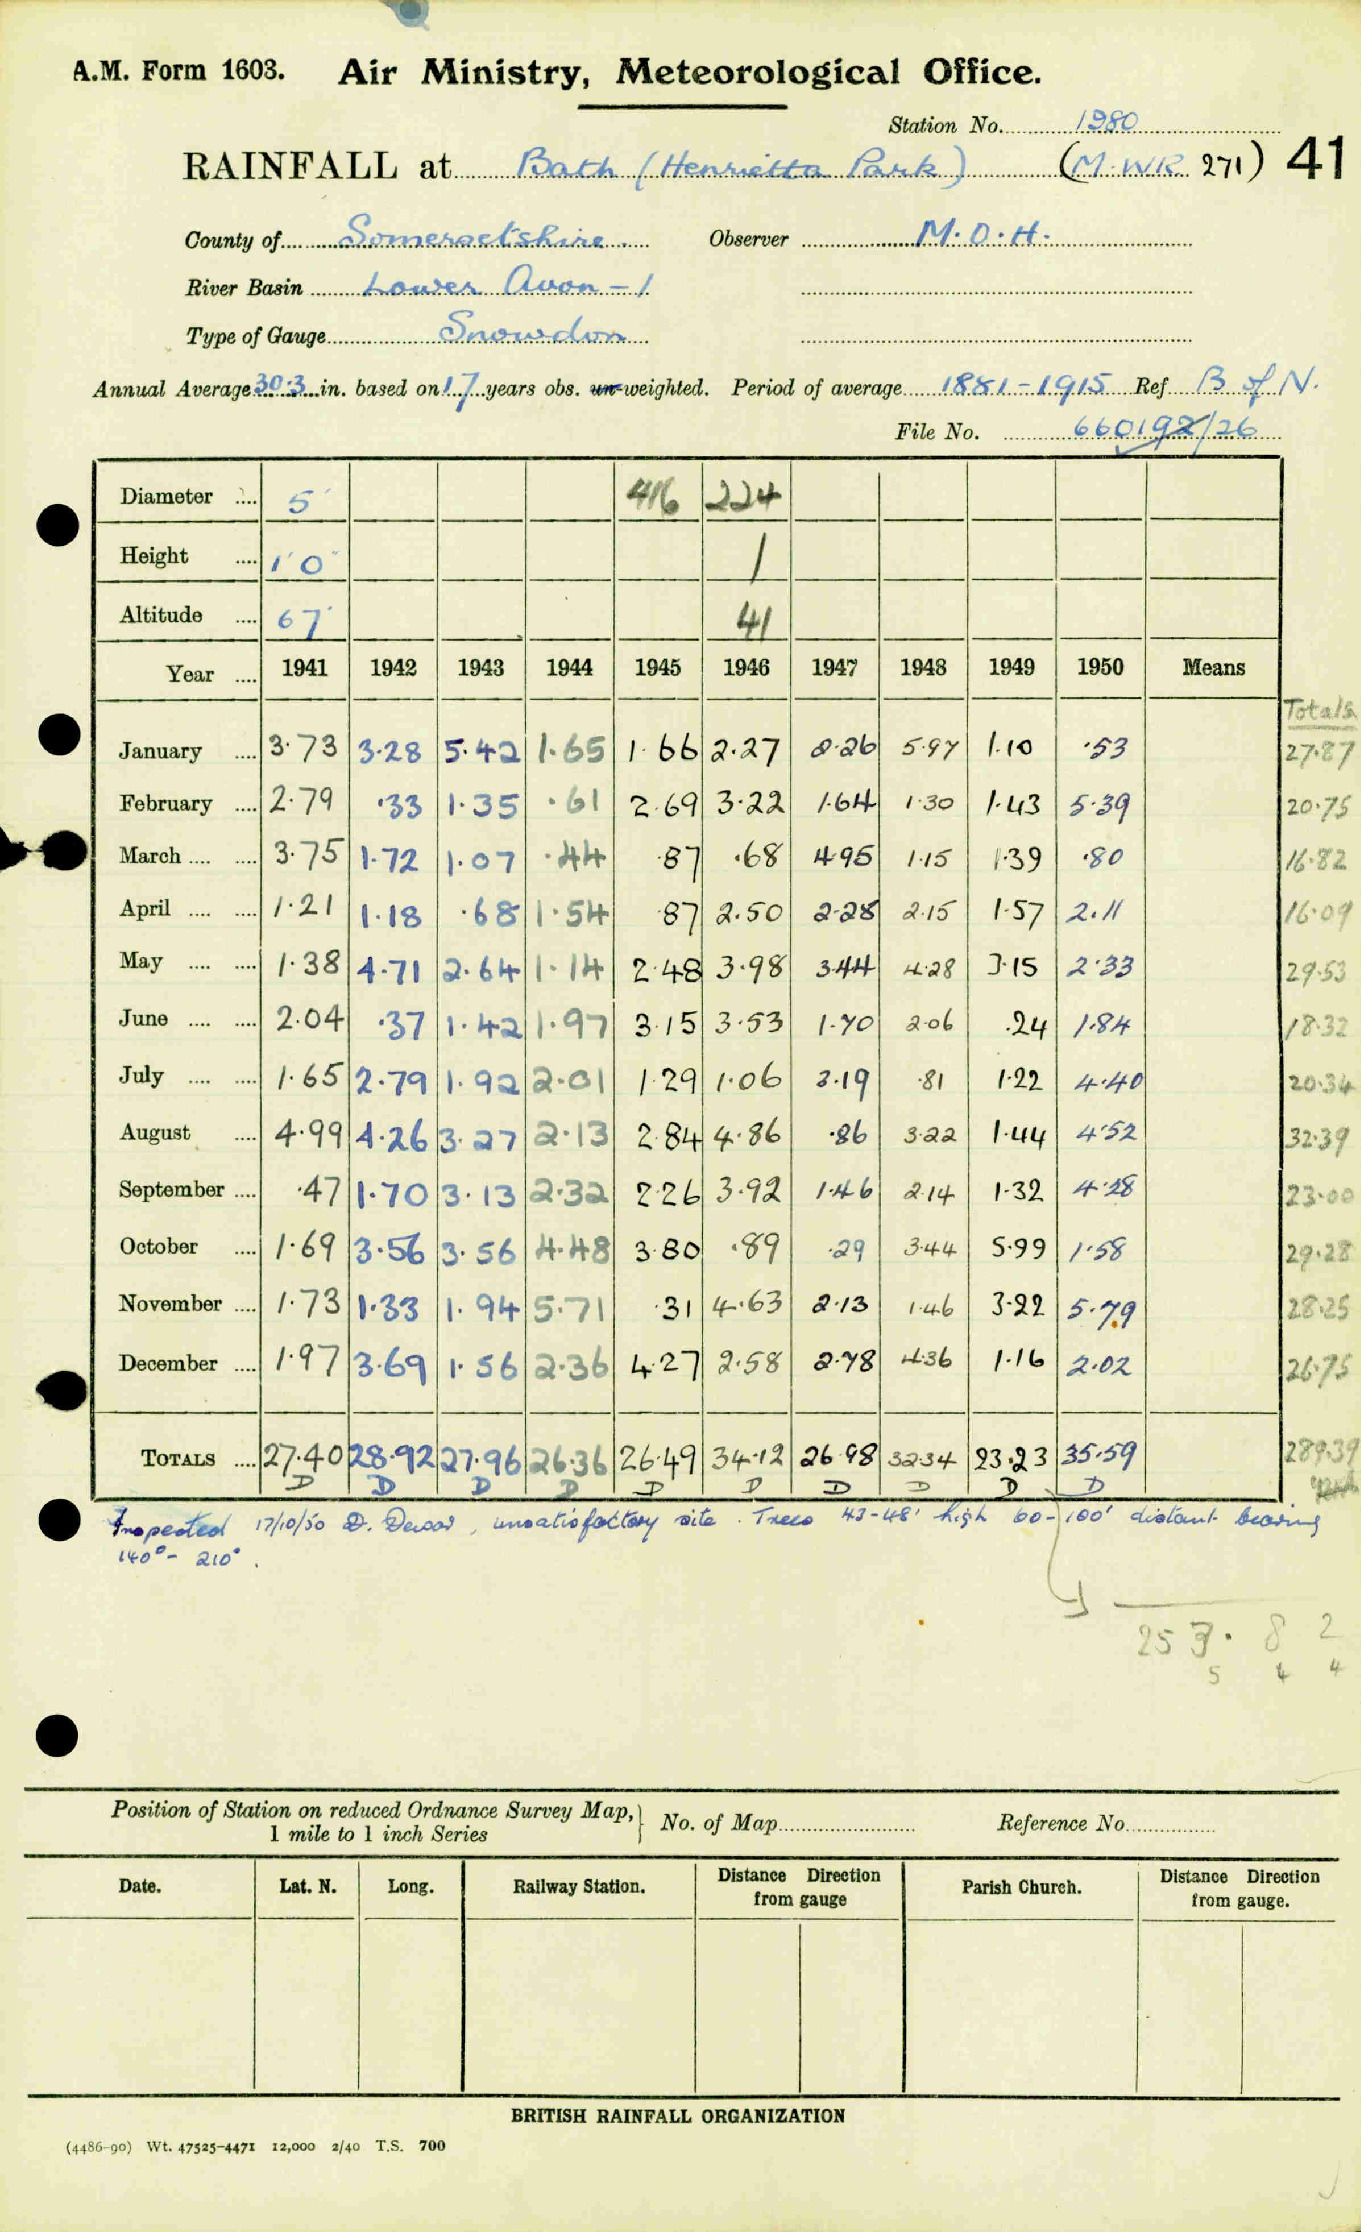 A.M. Form 1603. Air Ministry, Meteorological Office.
Station No. 1980
RAINFALL at Bath (Henrietta Park) (M.WR. 271) 41
County of Somersetshire. Observer M.O.H.
River Basin Lower Avon - 1
Type of Gauge Snowdon
Annual Average 30.3 in. based on 17 years obs. un-weighted. Period of average 1881-1915 Ref B of N.
File No. 660192/26
Diameter .... 5" 416 224
Height .... 1' 0" 1
Altitude .... 67' 41
Year .... 1941 1942 1943 1944 1945 1946 1947 1948 1949 1950 Means
Totals
January .... 3.73 3.28 5.42 1.65 1.66 2.27 2.26 5.97 1.10 .53 27.87
February .... 2.79 .33 1.35 .61 2.69 3.22 1.64 1.30 1.43 5.39 20.75
March .... .... 3.75 1.72 1.07 .44 .87 .68 4.95 1.15 1.39 .80 16.82
April .... .... 1.21 1.18 .68 1.54 .87 2.50 2.28 2.15 1.57 2.11 16.09
May .... .... 1.38 4.71 2.64 1.14 2.48 3.98 3.44 4.28 3.15 2.33 29.53
June .... .... 2.04 .37 1.42 1.97 3.15 3.53 1.70 2.06 .24 1.84 18.32
July .... .... 1.65 2.79 1.92 2.01 1.29 1.06 3.19 .81 1.22 4.40 20.34
August .... 4.99 4.26 3.27 2.13 2.84 4.86 .86 3.22 1.44 4.52 32.39
September .... .47 1.70 3.13 2.32 2.26 3.92 1.46 2.14 1.32 4.28 23.00
October .... 1.69 3.56 3.56 4.48 3.80 .89 .29 3.44 5.99 1.58 29.28
November .... 1.73 1.33 1.94 5.71 .31 4.63 2.13 1.46 3.22 5.79 28.25
December .... 1.97 3.69 1.56 2.36 4.27 2.58 2.78 4.36 1.16 2.02 26.75
TOTALS .... 27.40 28.92 27.96 26.36 26.49 34.12 26.98 32.34 23.23 35.59 289.39
D D D D D D D D D D
Inspected 17/10/50 D. Dewar, unsatisfactory site. Trees 43-48' high 60-100' distant bearing
140° - 210°.
253.82
5 4 4
Position of Station on reduced Ordnance Survey Map, 1 mile to 1 inch Series } No. of Map Reference No.
Date. Lat. N. Long. Railway Station. Distance Direction from gauge Parish Church. Distance Direction from gauge.
BRITISH RAINFALL ORGANIZATION
(4486-90) Wt. 47525-4471 12,000 2/40 T.S. 700